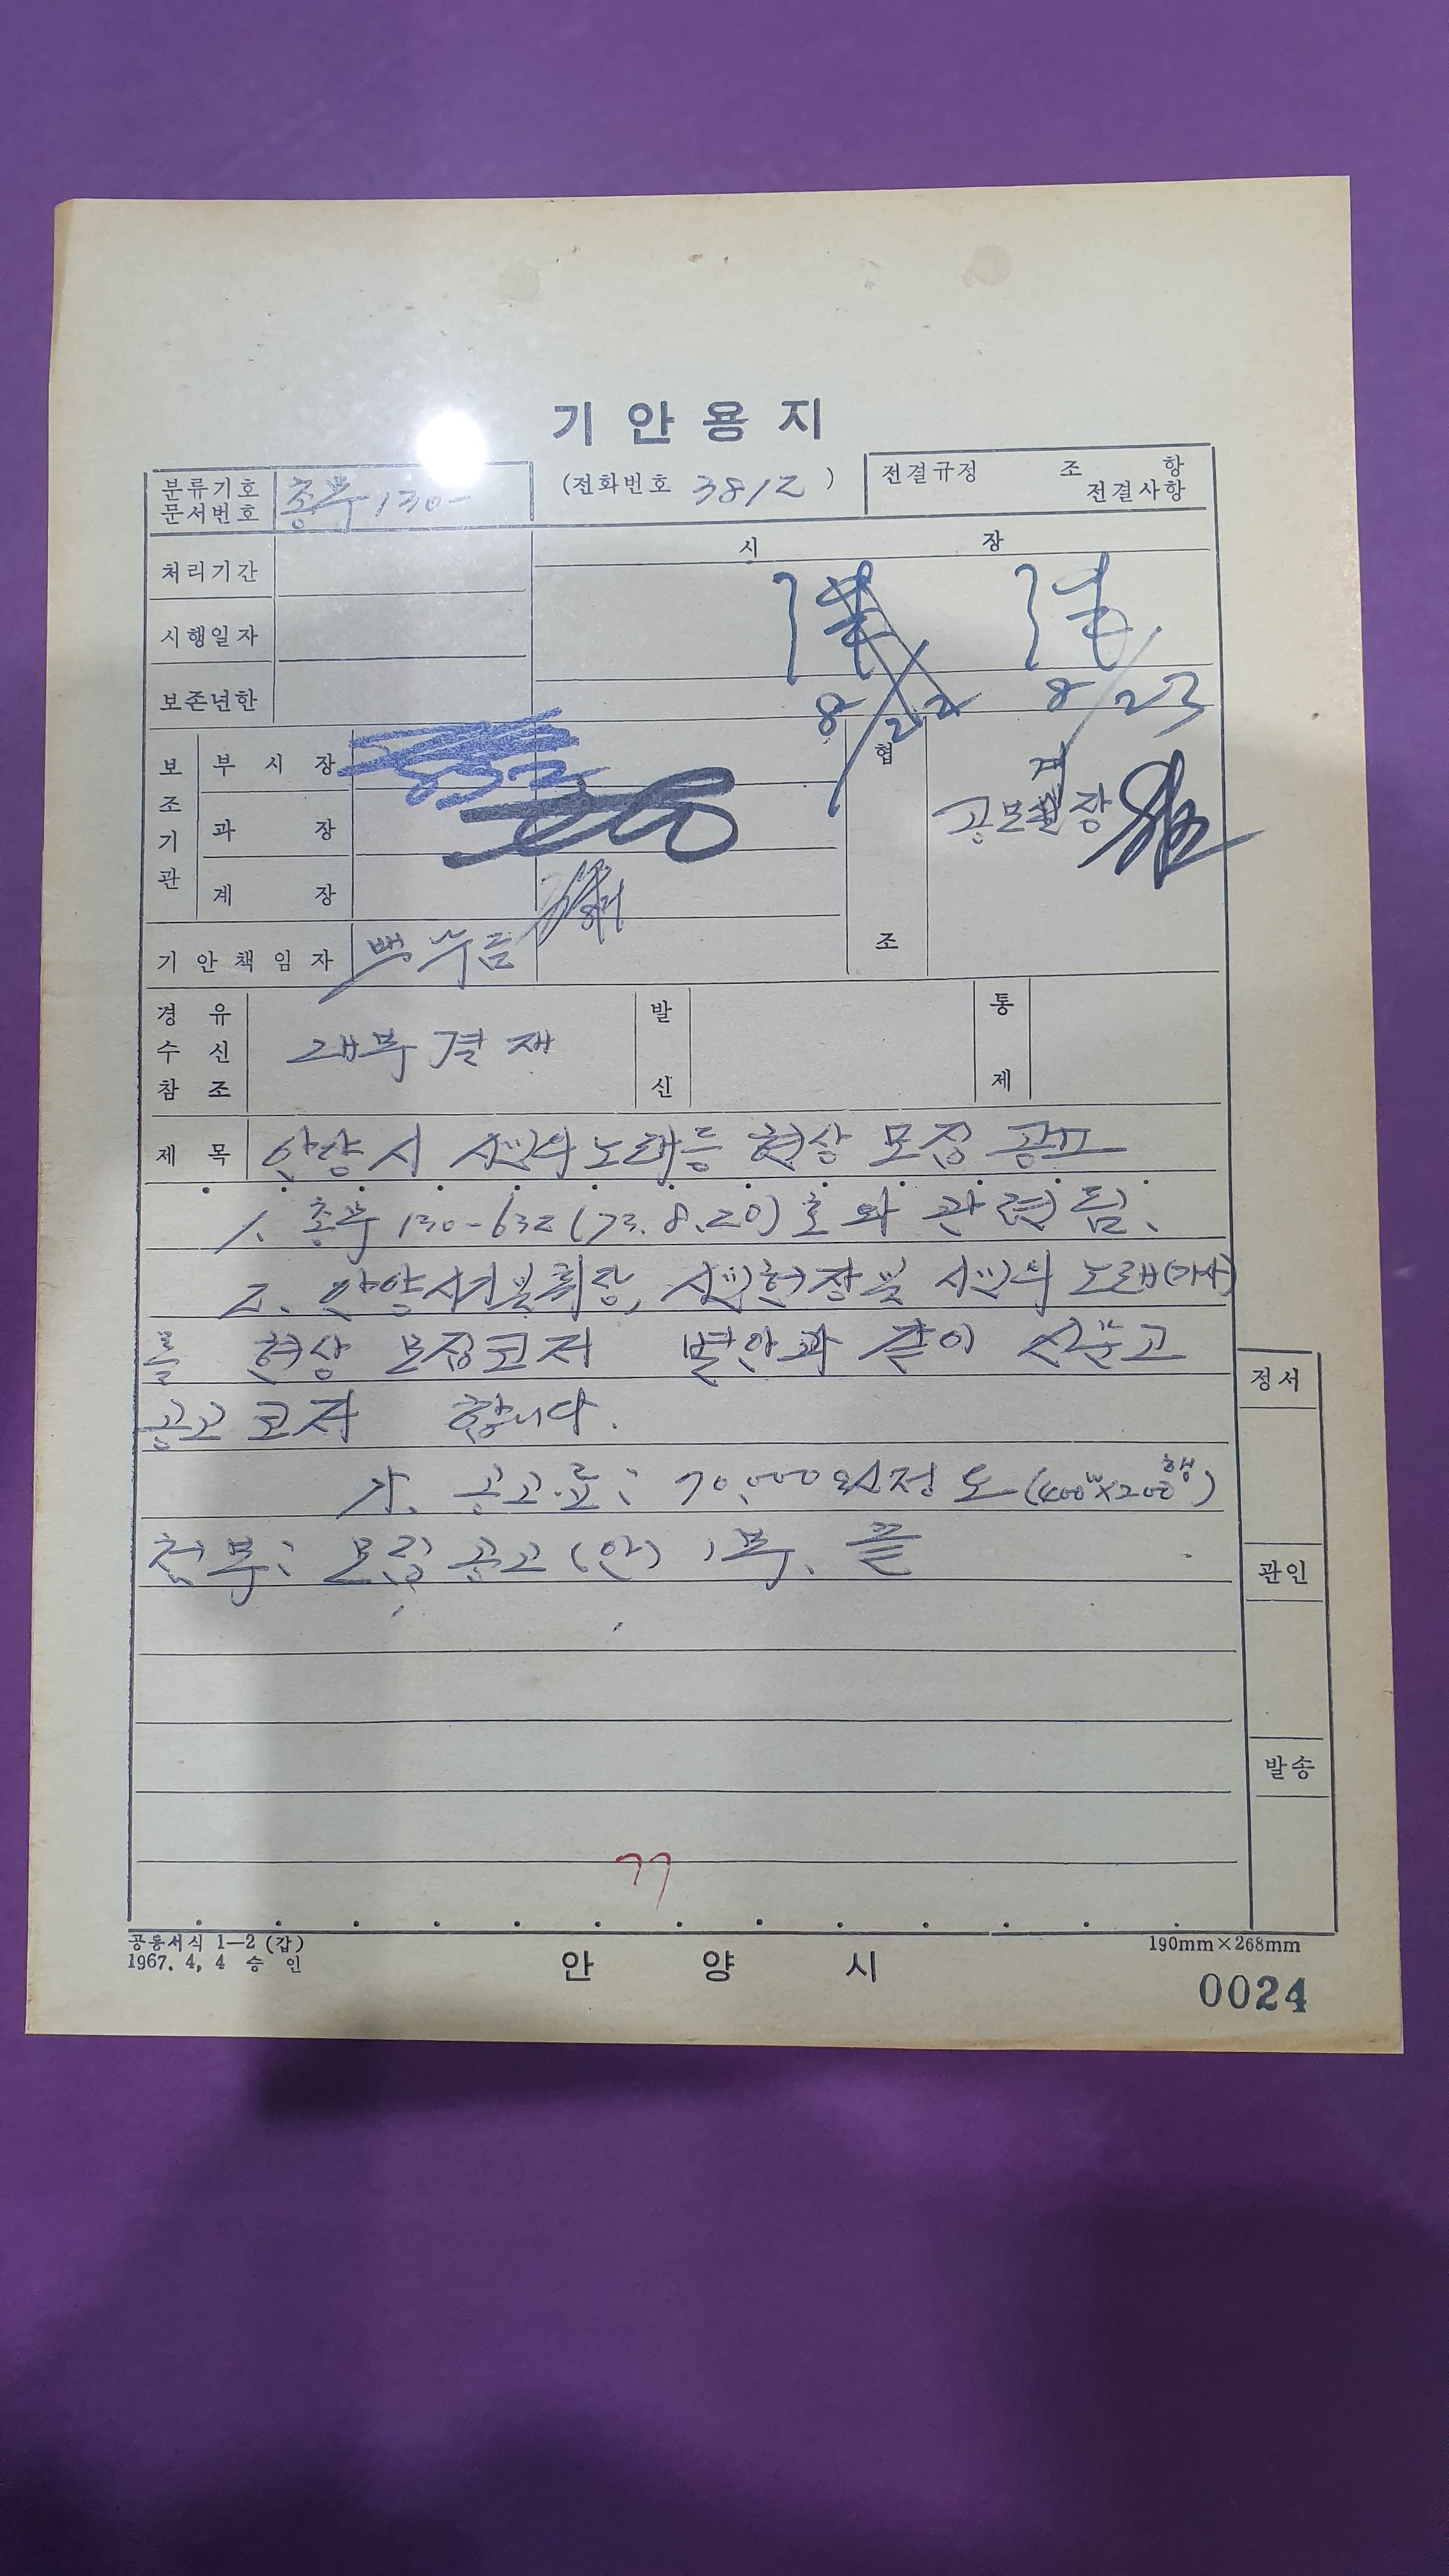 기안용지
분류기호
문서번호 총무 130-
(전화번호 3812)
전결규정 조 항
전결사항
처리기간
시행일자
보존년한
시 장
8/22 8/23
보조기관
부시장
과장
계장
협조
공보 장
기안책임자 백수흠
경유
수신
참조
내부결재
발신
통제
제목 안양시 시민의 노래 등 현상 모집 공고
1. 총무 130-632(73.8.20)호와 관련됨.
2. 안양시 휘장, 시민헌장 및 시민의 노래(가사)
를 현상 모집코저 별안과 같이 신문 공고
공고코저 합니다.
가. 공고료: 70,000원정도(400w×200행)
첨부: 모집 공고(안) 1부. 끝
정서
관인
발송
77
공통서식 1—2 (갑)
1967. 4, 4 승 인
안 양 시
190mm×268mm
0024